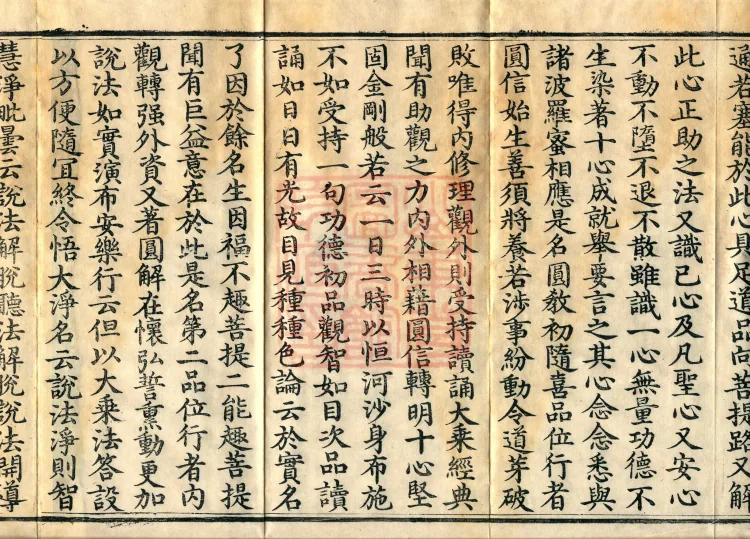 通若塞能於此心具足道品向菩提路又解
此心正助之法又識已心及凡聖心又安心
不動不墮不退不散雖識一心無量功德不
生染著十心成就舉要言之其心念念悉與
諸波羅蜜相應是名圓教初隨喜品位行者
圓信始生善須將養若涉事紛動令道芽破
敗唯得內修理觀外則受持讀誦大乘經典
聞有助觀之力內外相藉圓信轉明十心堅
固金剛般若云一日三時以恒河沙身布施
不如受持一句功德初品觀智如目次品讀
誦如日日有光故目見種種色論云於實名
了因於餘名生因福不趣菩提二能趣菩提
聞有巨益意在於此是名第二品位行者內
觀轉强外資又著圓解在懷弘誓熏動更加
說法如實演布安樂行云但以大乘法答設
以方便隨冝終令悟大淨名云說法淨則智
慧淨毗曇云說法解脫聽法解脫說法開導